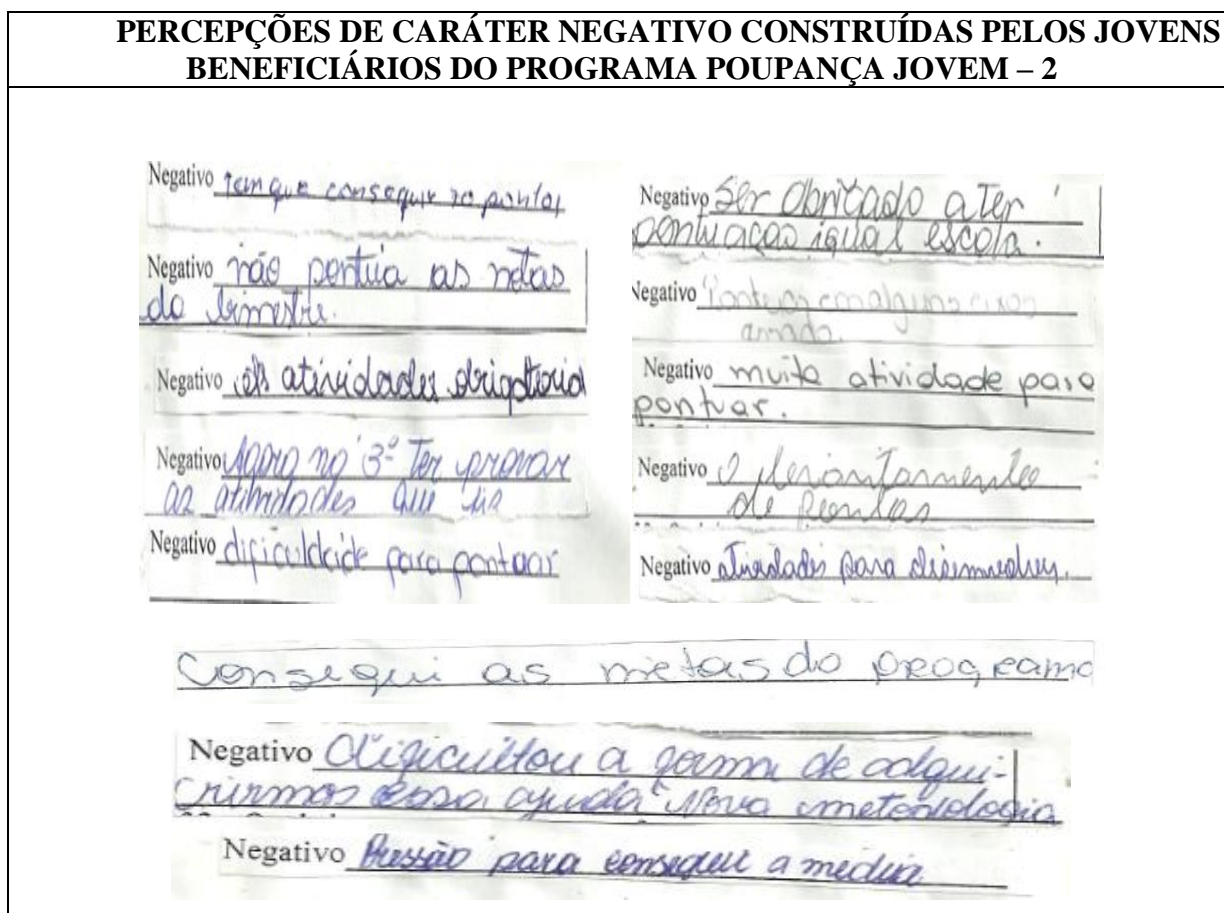 PERCEPÇÕES DE CARÁTER NEGATIVO CONSTRUÍDAS PELOS JOVENS
BENEFICIÁRIOS DO PROGRAMA POUPANÇA JOVEM – 2
Negativo Tem que conseguir 70 pontos
Negativo não pontua as notas
do bimestre.
Negativo as atividades obrigatoria
Negativo Agora no 3º Ter provar
as atividades que
Negativo dificuldade para pontuar
Negativo Ser Obrigado a Ter
pontuação igual escola.
Negativo em alguns
Negativo muita atividade para
pontuar.
Negativo O
de Pontos
Negativo atividades para desenvolver.
Consegui as metas do programa
Negativo Dificultou a forma de adqui-
rirmos essa ajuda "Nova metodologia
Negativo Pressão para consegui a media